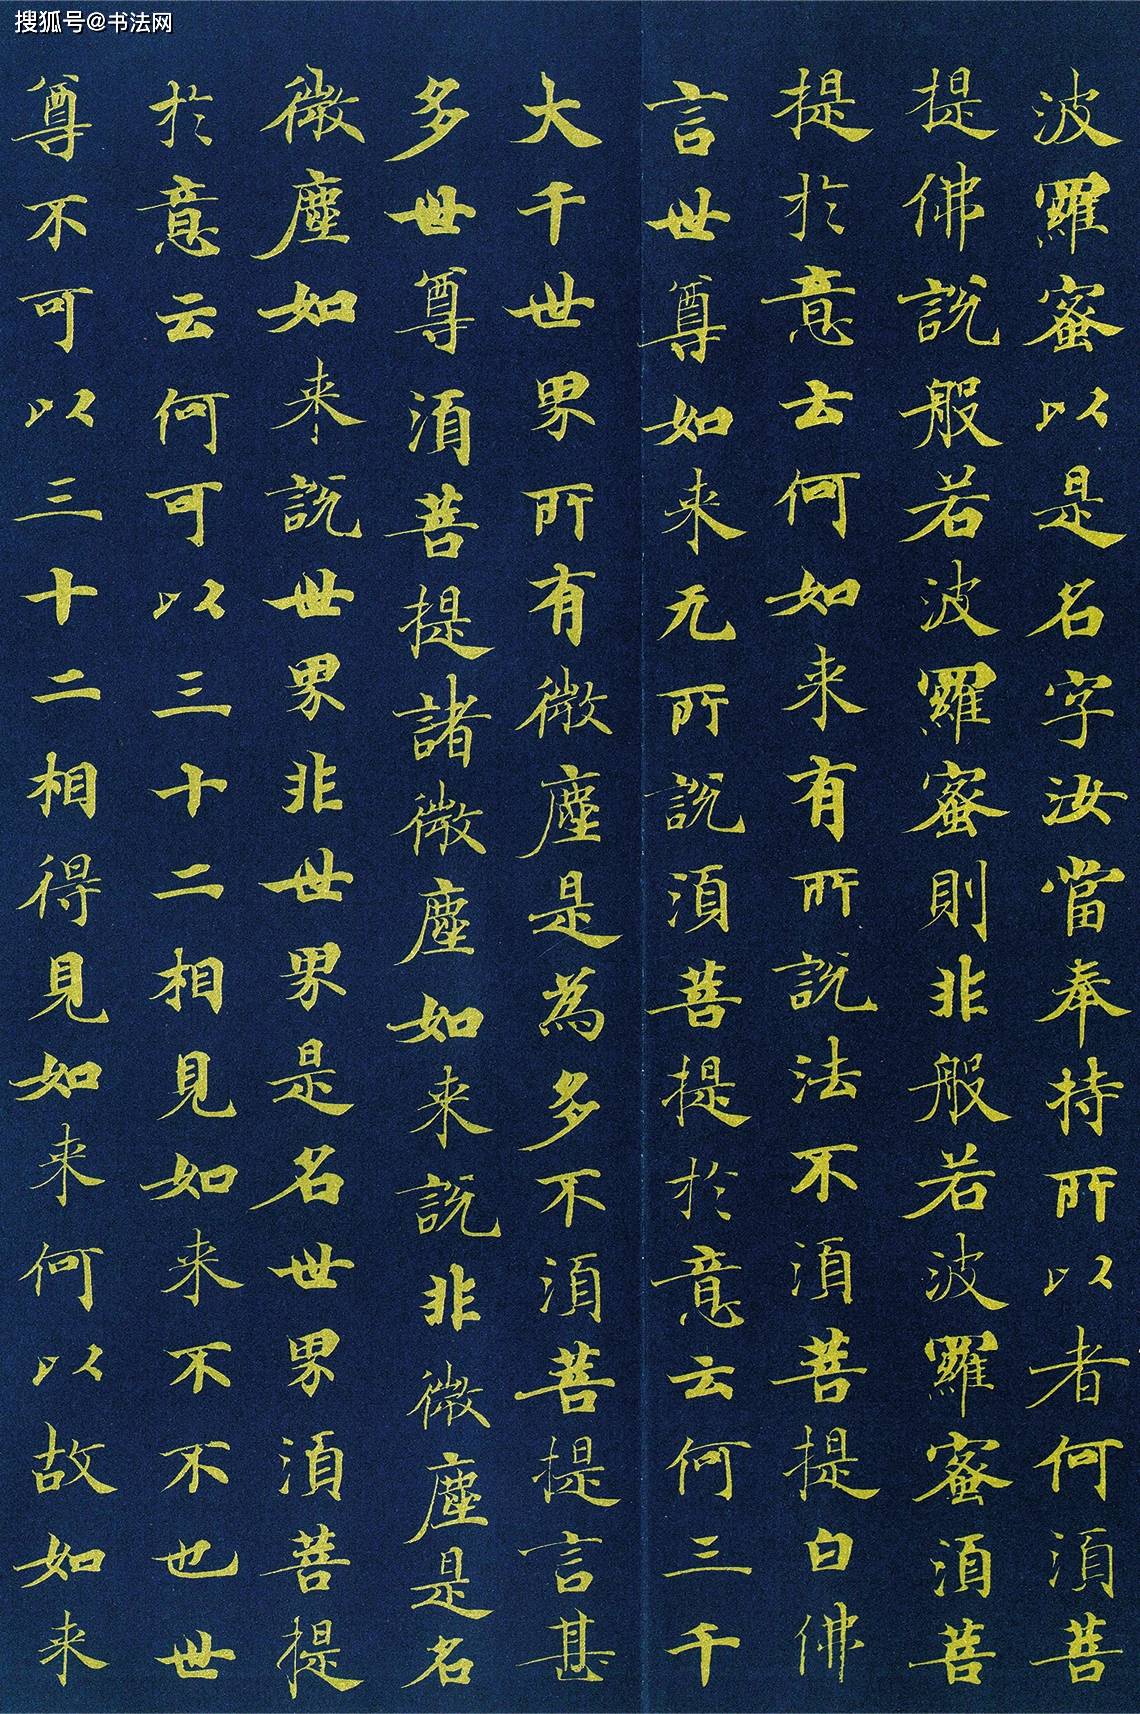 搜狐号@书法网
波羅蜜以是名字汝當奉持所以者何湏菩
提佛説般若波羅蜜則非般若波羅蜜湏菩
提於意云何如来有所説法不湏菩提白佛
言世尊如来无所説湏菩提於意云何三千
大千世界所有微塵是為多不湏菩提言甚
多世尊湏菩提諸微塵如来説非微塵是名
微塵如来説世界非世界是名世界湏菩提
於意云何可以三十二相見如来不不也世
尊不可以三十二相得見如来何以故如来